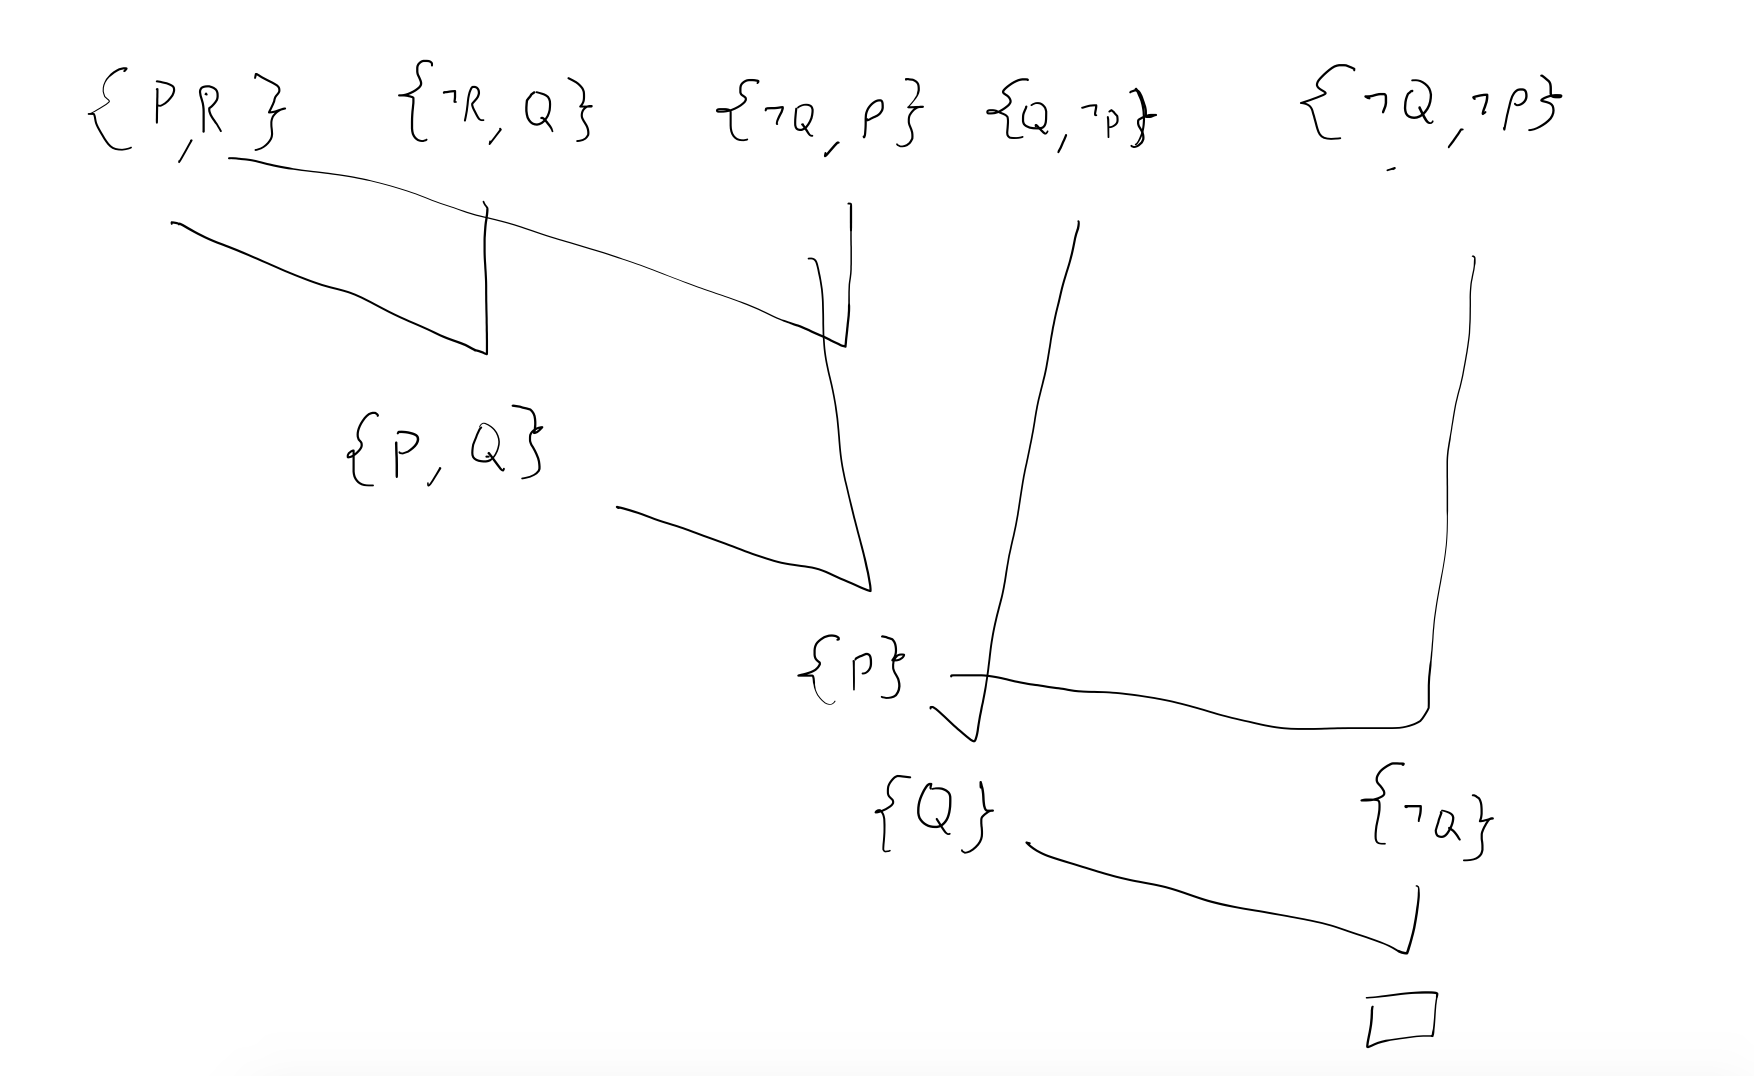 {P,R} {¬R, Q} {¬Q, P} {Q,¬P} {¬Q,¬P}
{P, Q}
{P}
{Q} {¬Q}